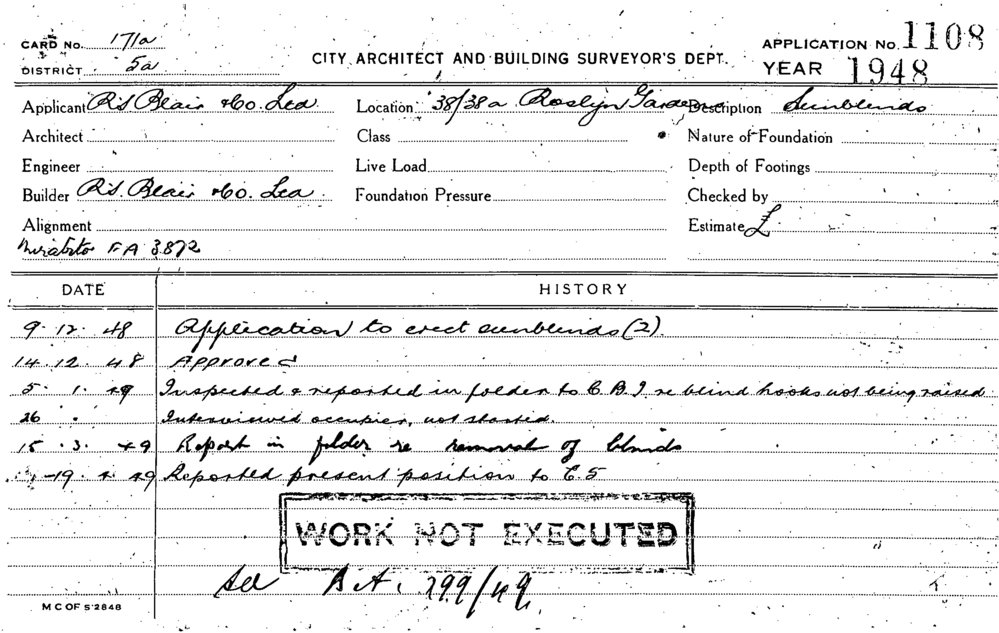 CARD No. 171a
DISTRICT 5a
CITY ARCHITECT AND BUILDING SURVEYOR'S DEPT.
APPLICATION No. 1108
YEAR 1948
Applicant R.S. Blair & Co. Ltd Location 38/38a Roslyn Gardens Description Sunblinds
Architect Class Nature of Foundation
Engineer Live Load Depth of Footings
Builder R.S. Blair & Co. Ltd. Foundation Pressure Checked by
Alignment Estimate £
FA 3872
DATE HISTORY
9.12.48 Application to erect sunblinds (2).
14.12.48 Approved
5.1.49 Inspected & reported in folder to C.B.I re blind hooks not being raised
26 . Interviewed occupier, not started.
15.3.49 Report in folder re removal of blinds
19.4.49 Reported present position to C.S
WORK NOT EXECUTED
See B.A. 299/49.
M C OF S 2848